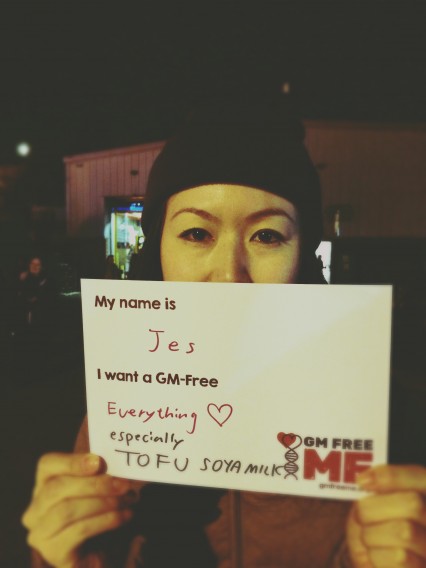 My name is
Jes
I want a GM-Free
Everything
especially
TOFU SOYA MILK
GM FREE
ME